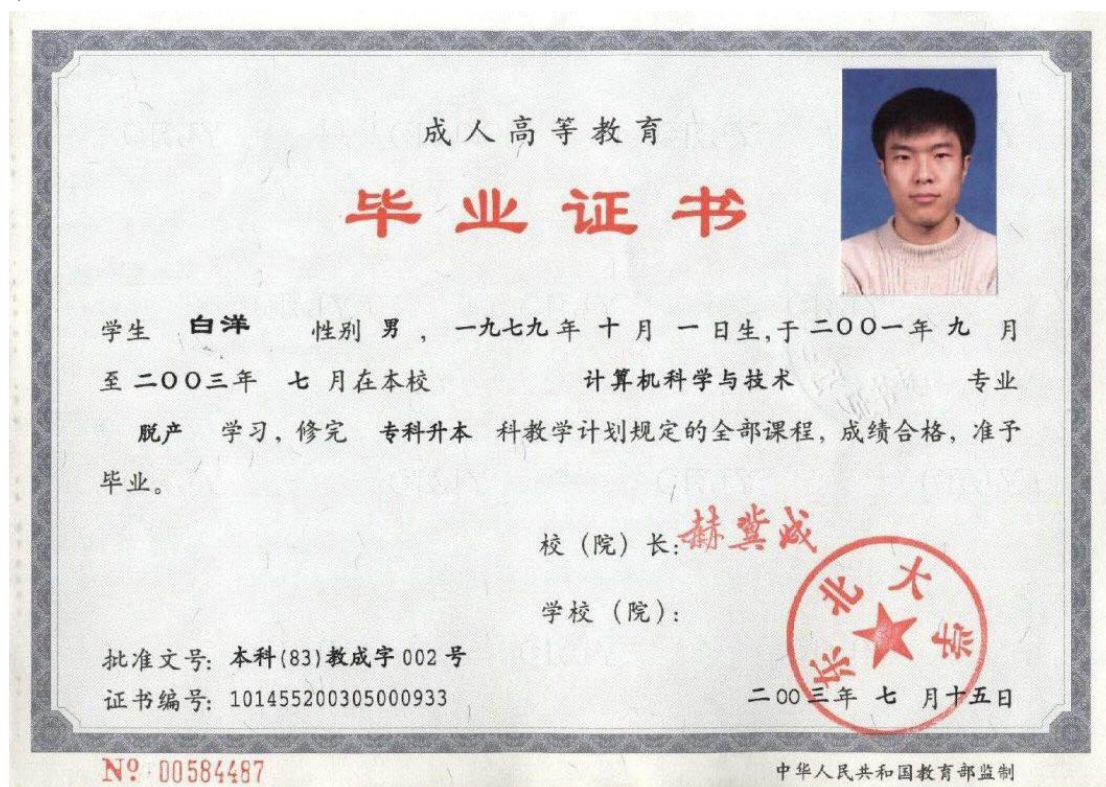 成人高等教育
毕业证书
学生 白洋 性别 男 , 一九七九年 十月 一日生,于二〇〇一年 九 月
至二〇〇三年 七月在本校 计算机科学与技术 专业
脱产 学习, 修完 专科升本 科教学计划规定的全部课程, 成绩合格, 准予
毕业。
校 (院) 长: 赫冀成
学校 (院):
东北大学
批准文号: 本科(83)教成字 002 号
证书编号: 101455200305000933
二〇〇三年 七 月十五日
№ 00584487
中华人民共和国教育部监制